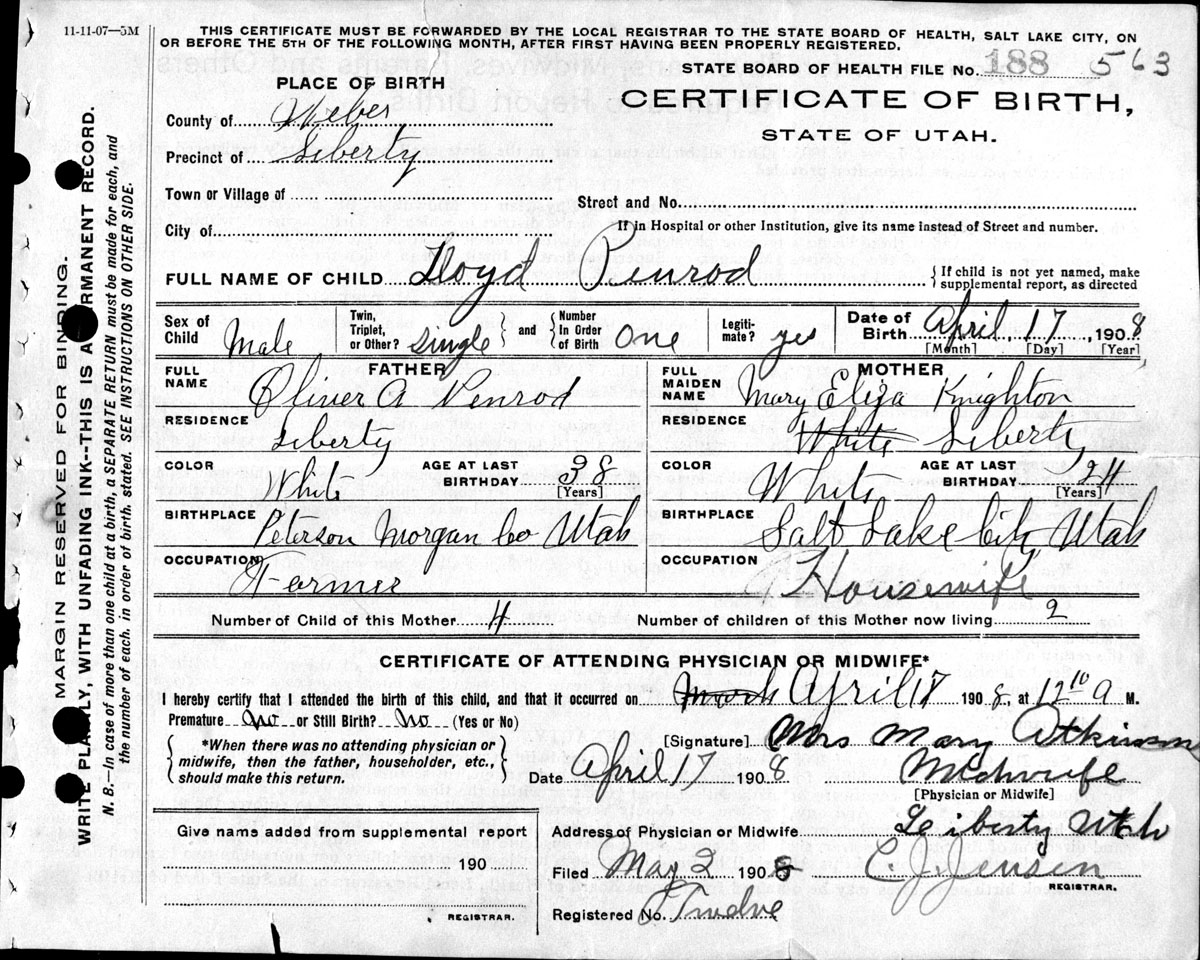 11-11-07—5M
THIS CERTIFICATE MUST BE FORWARDED BY THE LOCAL REGISTRAR TO THE STATE BOARD OF HEALTH, SALT LAKE CITY, ON
OR BEFORE THE 5TH OF THE FOLLOWING MONTH, AFTER FIRST HAVING BEEN PROPERLY REGISTERED.
STATE BOARD OF HEALTH FILE No. 188 563
PLACE OF BIRTH
CERTIFICATE OF BIRTH,
STATE OF UTAH.
County of Weber
Precinct of Liberty
Town or Village of
Street and No.
City of
If in Hospital or other Institution, give its name instead of Street and number.
FULL NAME OF CHILD Floyd Penrod { If child is not yet named, make
supplemental report, as directed
Sex of Child Male Twin, Triplet, or Other? Single and Number In Order of Birth One Legiti- mate? yes Date of Birth April, 17, 1908
[Month] [Day] [Year]
FATHER MOTHER
FULL NAME Oliver A Penrod FULL MAIDEN NAME Mary Eliza Knighton
RESIDENCE Liberty RESIDENCE White Liberty
COLOR White AGE AT LAST BIRTHDAY 38 [Years] COLOR White AGE AT LAST BIRTHDAY 24 [Years]
BIRTHPLACE Peterson Morgan Co Utah BIRTHPLACE Salt Lake City Utah
OCCUPATION Farmer OCCUPATION Housewife
Number of Child of this Mother 4 Number of children of this Mother now living 2
CERTIFICATE OF ATTENDING PHYSICIAN OR MIDWIFE*
I hereby certify that I attended the birth of this child, and that it occurred on March April 17 1908, at 12 10 a M.
Premature No or Still Birth? No (Yes or No)
*When there was no attending physician or
midwife, then the father, householder, etc.,
should make this return.
[Signature] Mrs Mary Atkinson
Date April 17 1908 Midwife
[Physician or Midwife]
Give name added from supplemental report
190
REGISTRAR.
Address of Physician or Midwife Leiberty Utah
Filed May 2 1908 C. J. Jensen
REGISTRAR.
Registered No. Twelve
MARGIN RESERVED FOR BINDING.
WRITE PLAINLY, WITH UNFADING INK--THIS IS A PERMANENT RECORD.
N. B.—In case of more than one child at a birth, a SEPARATE RETURN must be made for each, and
the number of each, in order of birth, stated. SEE INSTRUCTIONS ON OTHER SIDE.